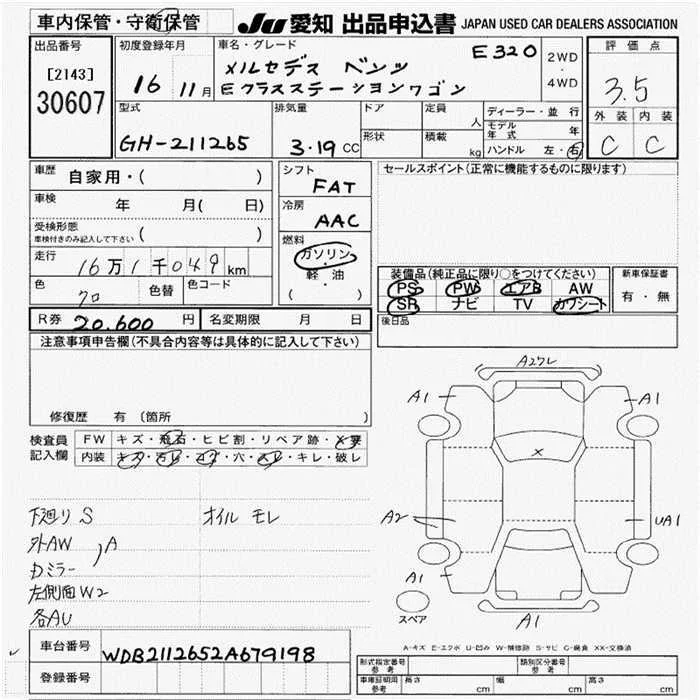 車内保管・守衛保管 JU 愛知 出品申込書 JAPAN USED CAR DEALERS ASSOCIATION
出品番号 [2143] 30607
初度登録年月 16 年 11 月
車名・グレード E320
メルセデス ベンツ
Eクラスステーションワゴン
2WD・4WD
評価点 3.5
外装 C 内装 C
型式 GH-211265
排気量 3.19 CC
ドア 形状
定員 人
積載 kg
ディーラー・並行
モデル年式 年
ハンドル 左・右
車歴 自家用・( )
車検 年 月( 日)
受検形態 車検付きのみ記入して下さい ( )
走行 16万1千049 km
色 クロ 色替 色コード
R券 20.600 円 名変期限 月 日
シフト FAT
冷房 AAC
燃料 ガソリン・軽油 ( )
セールスポイント(正常に機能するものに限ります)
装備品(純正品に限り○をつけてください)
PS PW エアB AW
SR ナビ TV カワシート
新車保証書 有・無
後日品
注意事項申告欄(不具合内容等は具体的に記入して下さい)
修復歴 有 (箇所 )
検査員記入欄
FW キズ・飛石・ヒビ割・リペア跡・X要
内装 キズ・汚レ・コゲ・穴・スレ・キレ・破レ
下廻り S オイル モレ
外AW
Dミラー ) A
左側面 W2
各AU
A2ワレ
A1 A1
X
A2 UA1
A1
スペア A1
A-キズ E-エクボ U-凹み W-補修跡 S-サビ C-腐食 XX-交換済
車台番号 WDB2112652A679198
登録番号
型式指定番号 参考 類別区分番号 参考
車庫証明用 参考 長さ cm 幅 cm 高さ cm